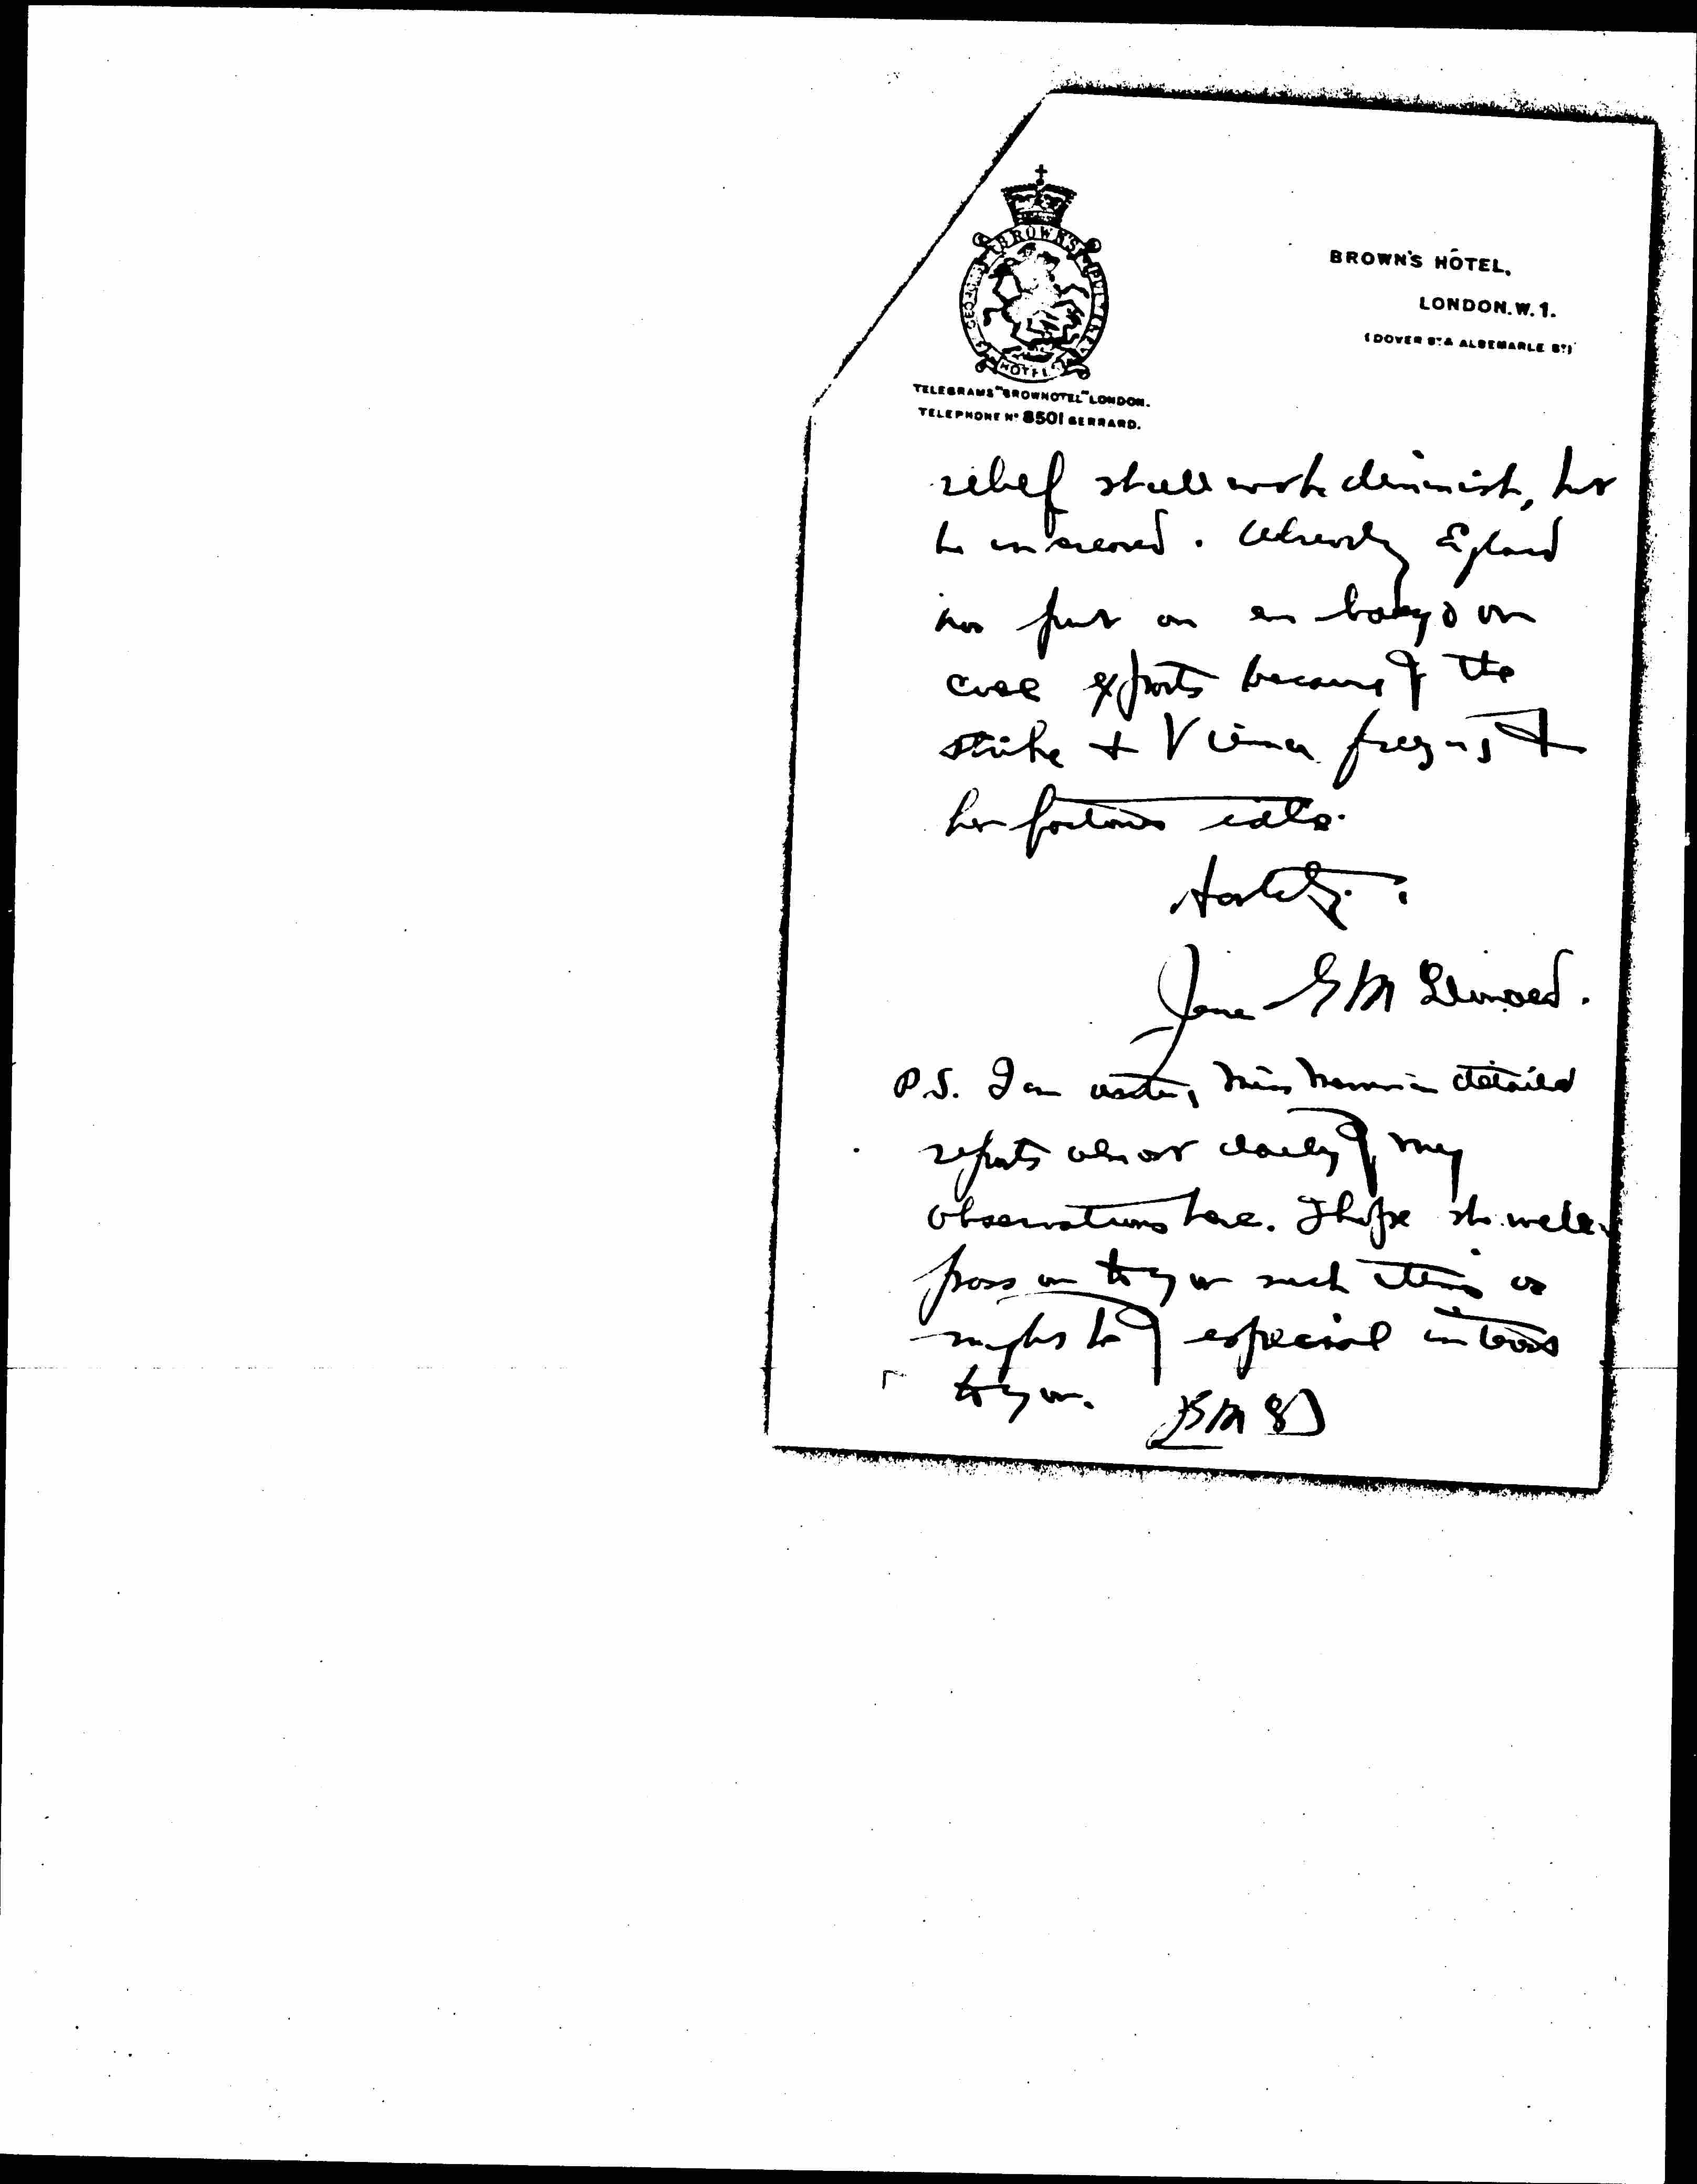 BROWN'S
ST GEORGE'S
HOTEL
BROWN'S HOTEL,
LONDON. W. 1.
(DOVER ST & ALBEMARLE ST)
TELEGRAMS "BROWNOTEL" LONDON.
TELEPHONE No 8501 GERRARD.
relief shall not diminish, but
be increased. Already England
has put on embargo on
coal exports because of the
strike & Vienna freezes &
her factories idle.
Hastily,
P.S. I am writing Miss detailed
reports almost daily of my
observations here. I hope she will
pass on to you such items as
might be of especial interest
to you.